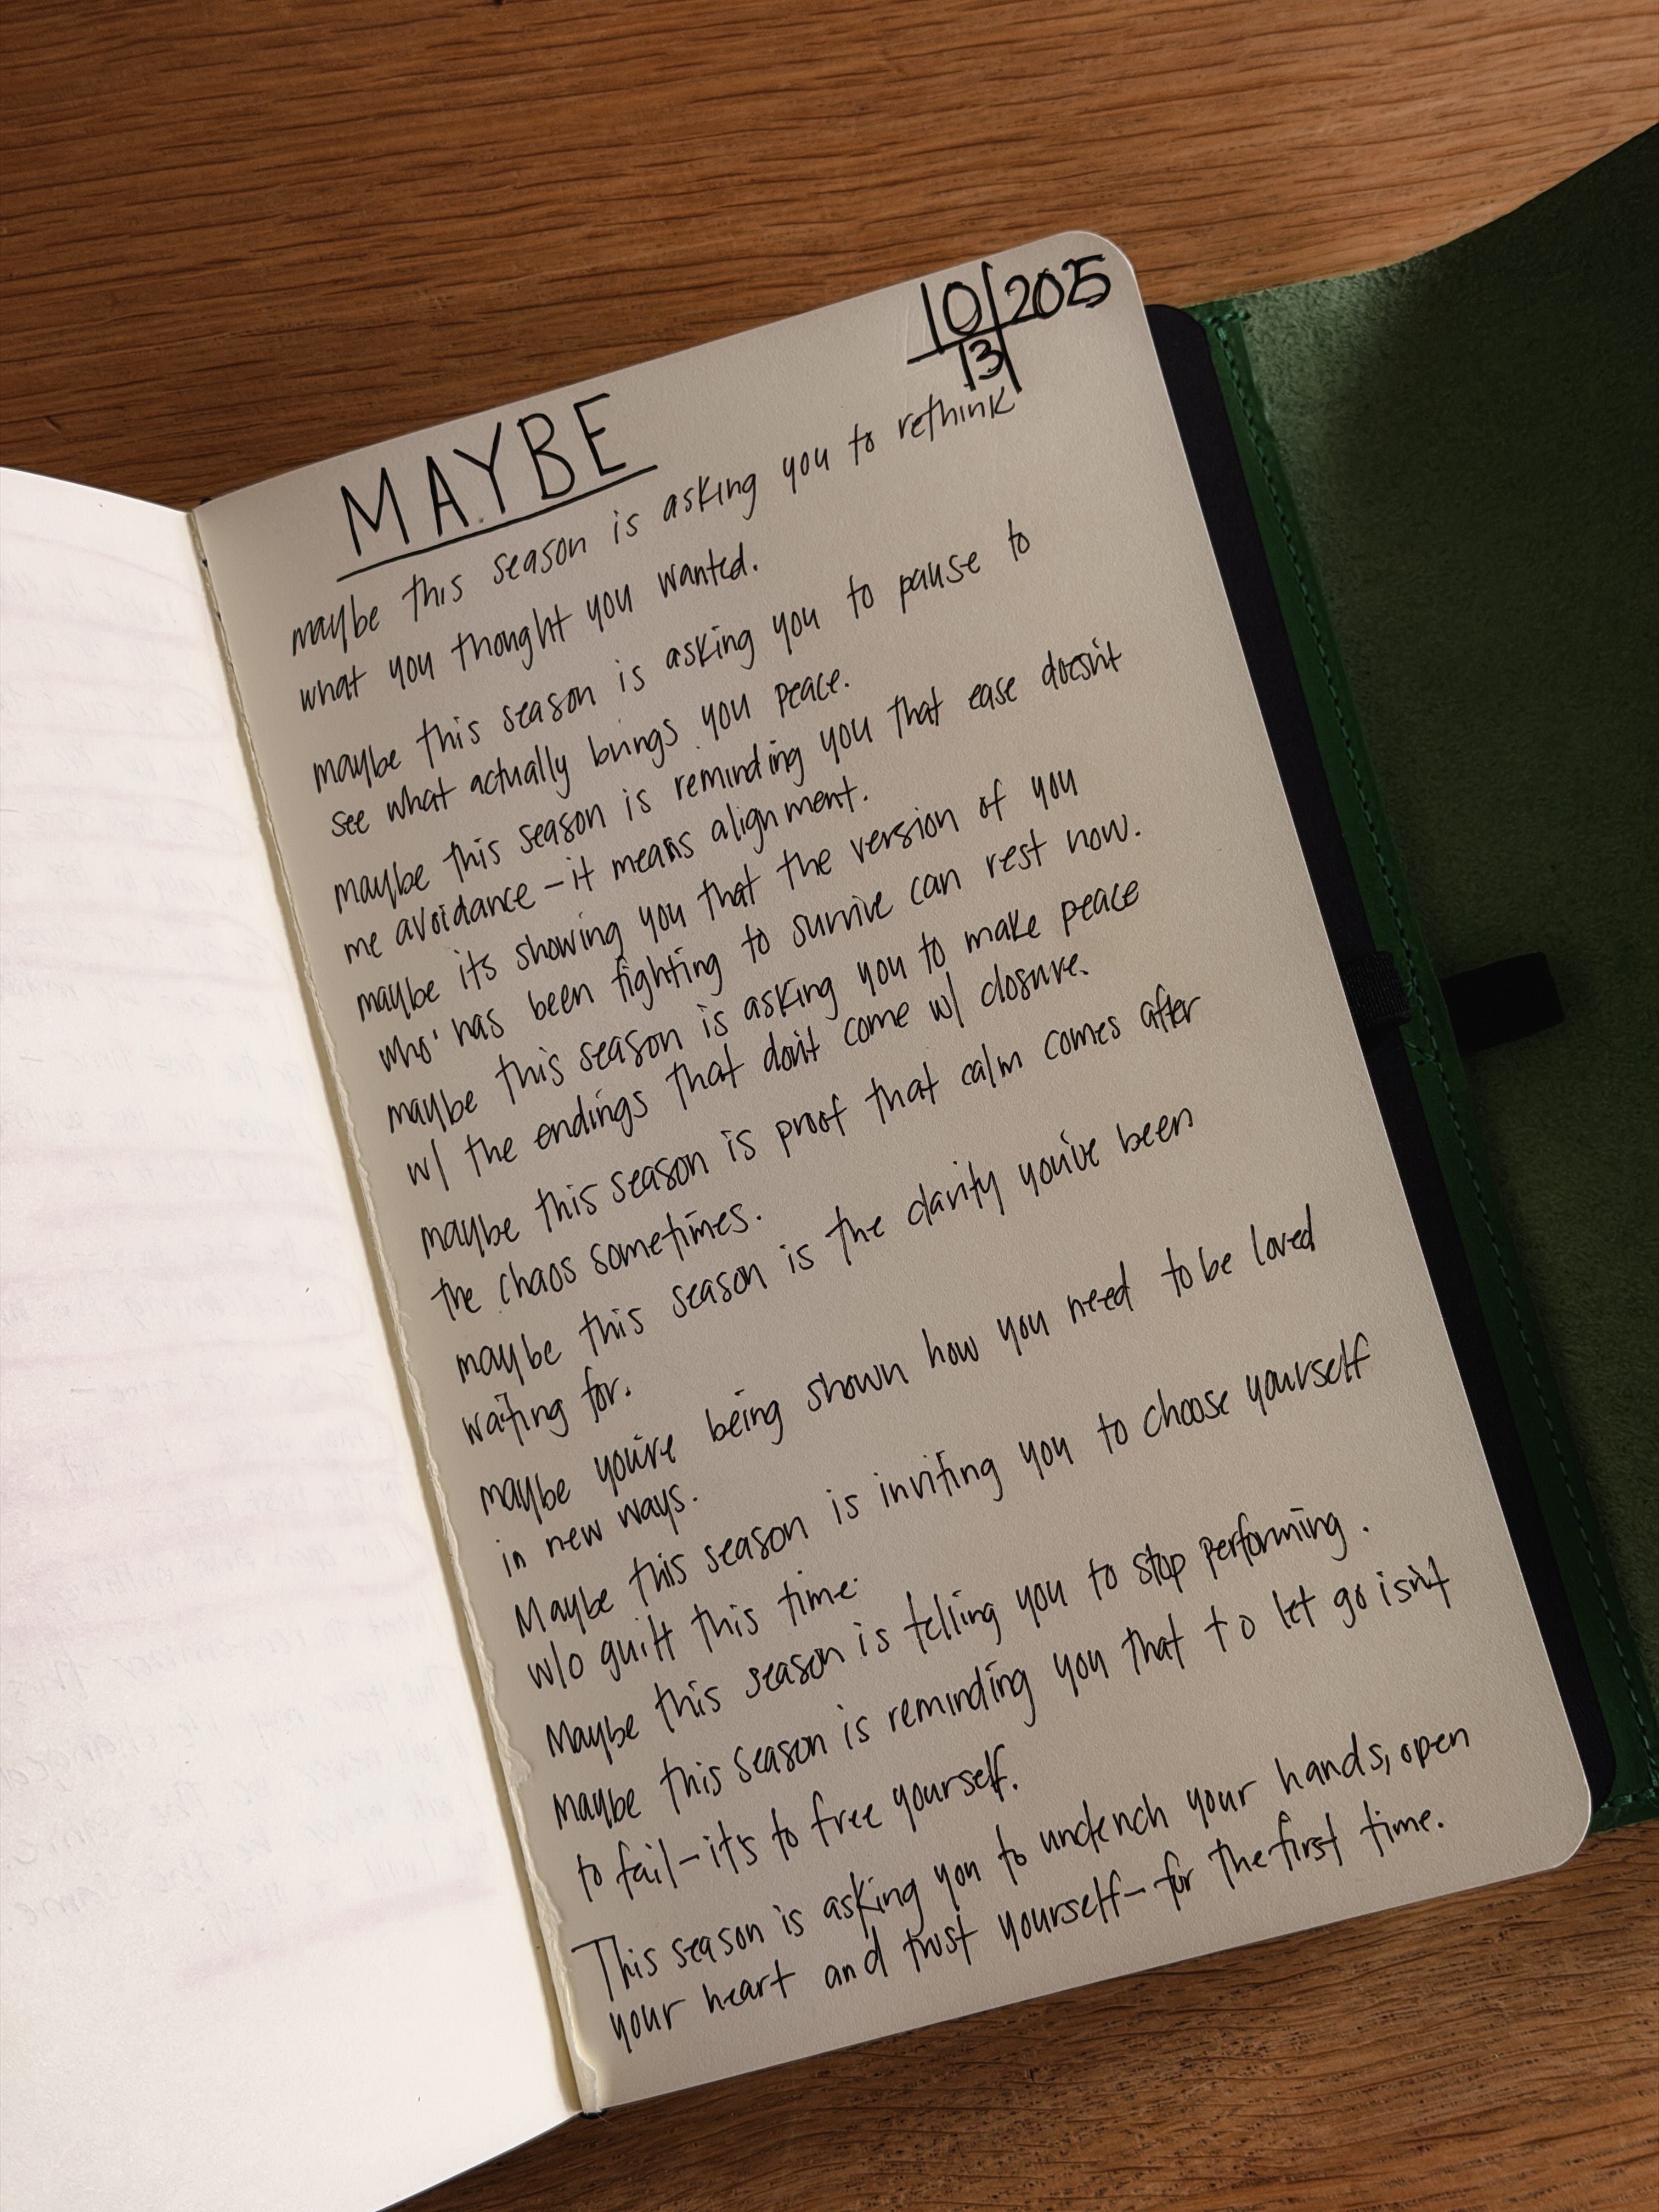 10/2025
13
MAYBE
maybe this season is asking you to rethink
what you thought you wanted.
maybe this season is asking you to pause to
see what actually brings you peace.
maybe this season is reminding you that ease doesn't
me avoidance – it means alignment.
maybe its showing you that the version of you
who has been fighting to survive can rest now.
maybe this season is asking you to make peace
w/ the endings that don't come w/ closure.
maybe this season is proof that calm comes after
the chaos sometimes.
maybe this season is the clarity you've been
waiting for.
maybe you're being shown how you need to be loved
in new ways.
Maybe this season is inviting you to choose yourself
w/o guilt this time.
Maybe this season is telling you to stop performing.
maybe this season is reminding you that to let go isn't
to fail – it's to free yourself.
This season is asking you to unclench your hands, open
your heart and trust yourself – for the first time.